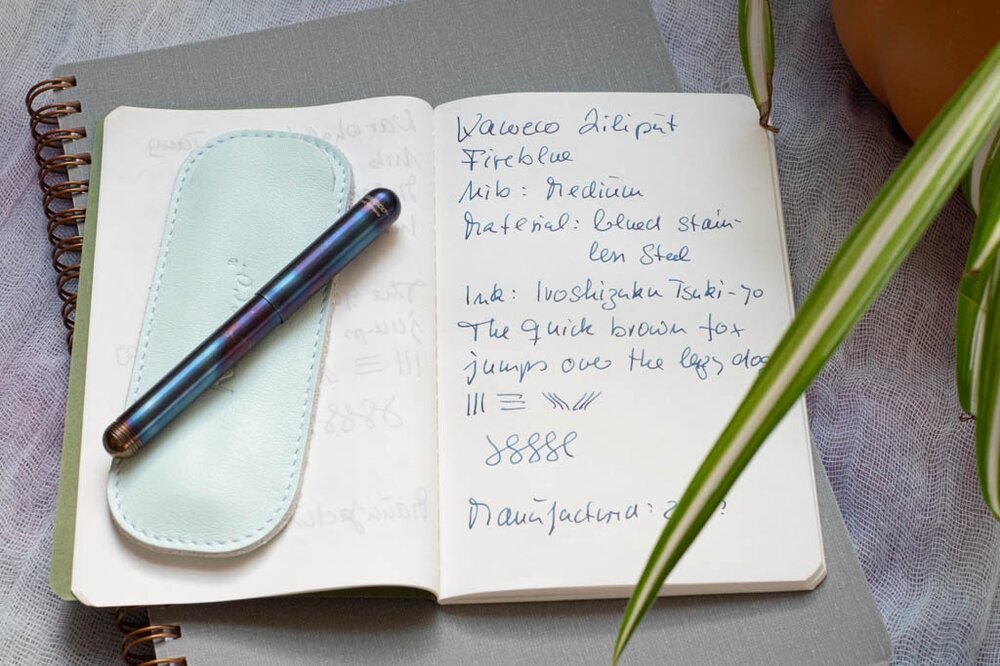 Kaweco Liliput
Fireblue
Nib: Medium
Material: blued stain-
less Steel
Ink: Iroshizuku Tsuki-yo
The quick brown fox
jumps over the lazy dog
Manufactured: